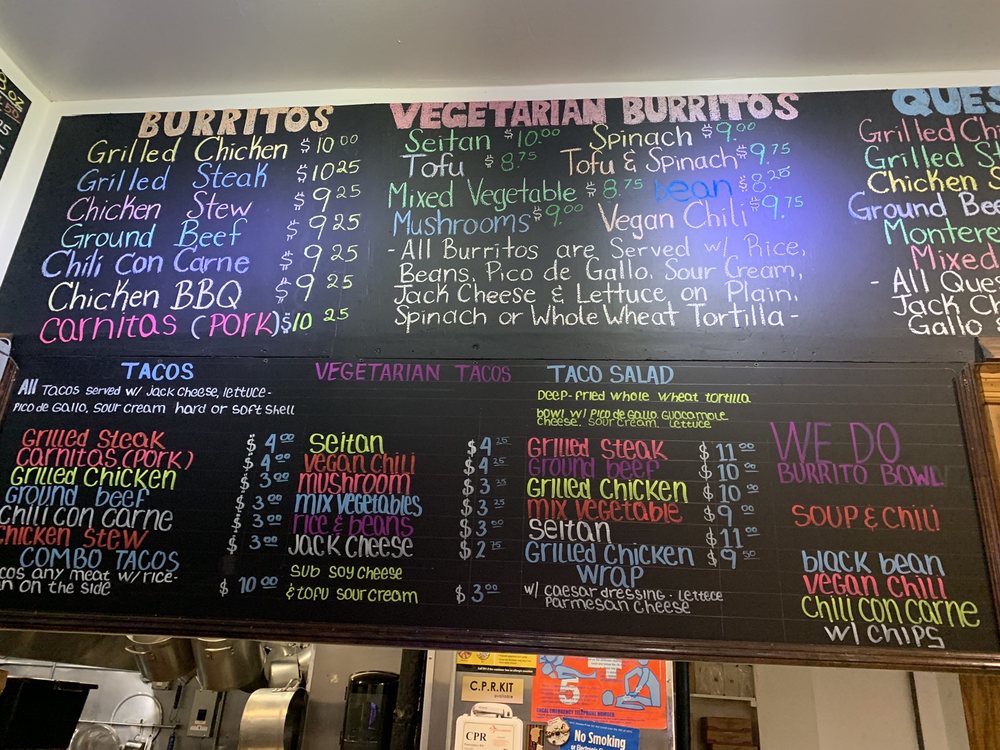 BURRITOS
Grilled Chicken $10 00
Grilled Steak $10 25
Chicken Stew $9 25
Ground Beef $9 25
Chili Con Carne $9 25
Chicken BBQ $9 25
Carnitas (PORK) $10 25
VEGETARIAN BURRITOS
Seitan $10.00 Spinach $9.00
Tofu $8.75 Tofu & Spinach $9.75
Mixed Vegetable $8.75 bean $8.25
Mushrooms $9.00 Vegan Chili $9.75
-All Burritos are Served w/ Rice,
Beans, Pico de Gallo, Sour Cream,
Jack Cheese & Lettuce on Plain,
Spinach or Whole Wheat Tortilla -
QUES
Grilled Ch
Grilled St
Chicken S
Ground Bee
Montere
Mixed
- All Ques
Jack Ch
Gallo
TACOS
All Tacos served w/ Jack cheese, lettuce-
Pico de Gallo, sour cream hard or soft shell
Grilled steak $4 00
Carnitas (PORK) $4 00
Grilled chicken $3 00
Ground beef $3 00
Chili con carne $3 00
Chicken stew $3 00
COMBO TACOS
cos any meat w/ rice-
n on the side $10 00
VEGETARIAN TACOS
Seitan $4 25
Vegan chili $4 25
mushroom $3 25
mix vegetables $3 25
rice & beans $3
Jack cheese $2 75
Sub soy cheese
& tofu sour cream $3 00
TACO SALAD
Deep-fried whole wheat tortilla
bowl w/ Pico de Gallo, Guacamole
cheese, sour cream, lettuce
Grilled steak $11 00
Ground beef $10 00
Grilled chicken $10 00
mix vegetable $9 00
Seitan $11 00
Grilled chicken $9 50
wrap
w/ caesar dressing - lettuce
Parmesan cheese
WE DO
BURRITO BOWL
SOUP & Chili
black bean
vegan chili
Chili con carne
w/ chips
C.P.R. KIT
available
CPR
5
LOCAL EMERGENCY TELEPHONE NUMBER
No Smoking